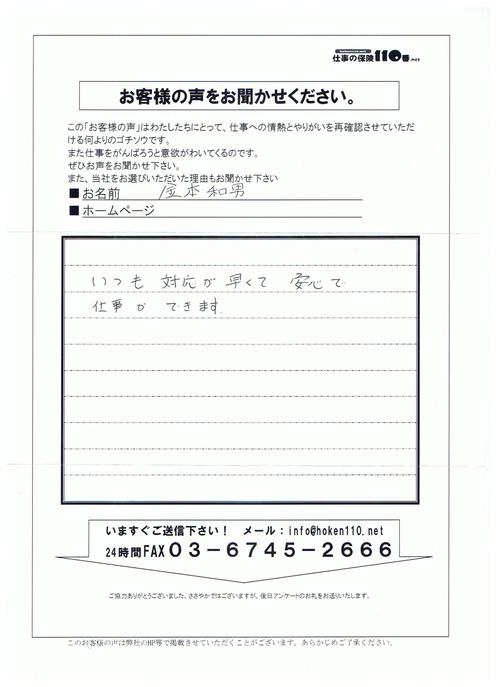 仕事の保険110番.net
お客様の声をお聞かせください。
この「お客様の声」はわたしたちにとって、仕事への情熱とやりがいを再確認させていただ
ける何よりのゴチソウです。
また仕事をがんばろうと意欲がわいてくるのです。
ぜひお声をお聞かせ下さい。
また、当社をお選びいただいた理由もお聞かせ下さい
■お名前 金本和男
■ホームページ
いつも 対応が 早くて 安心で
仕事が できます
いますぐご送信下さい! メール:info@hoken110.net
24時間FAX03-6745-2666
ご協力ありがとうございました。ささやかではございますが、後日アンケートのお礼をお送りいたします。
このお客様の声は弊社のHP等で掲載させていただくことがございます。あらかじめご了承ください。